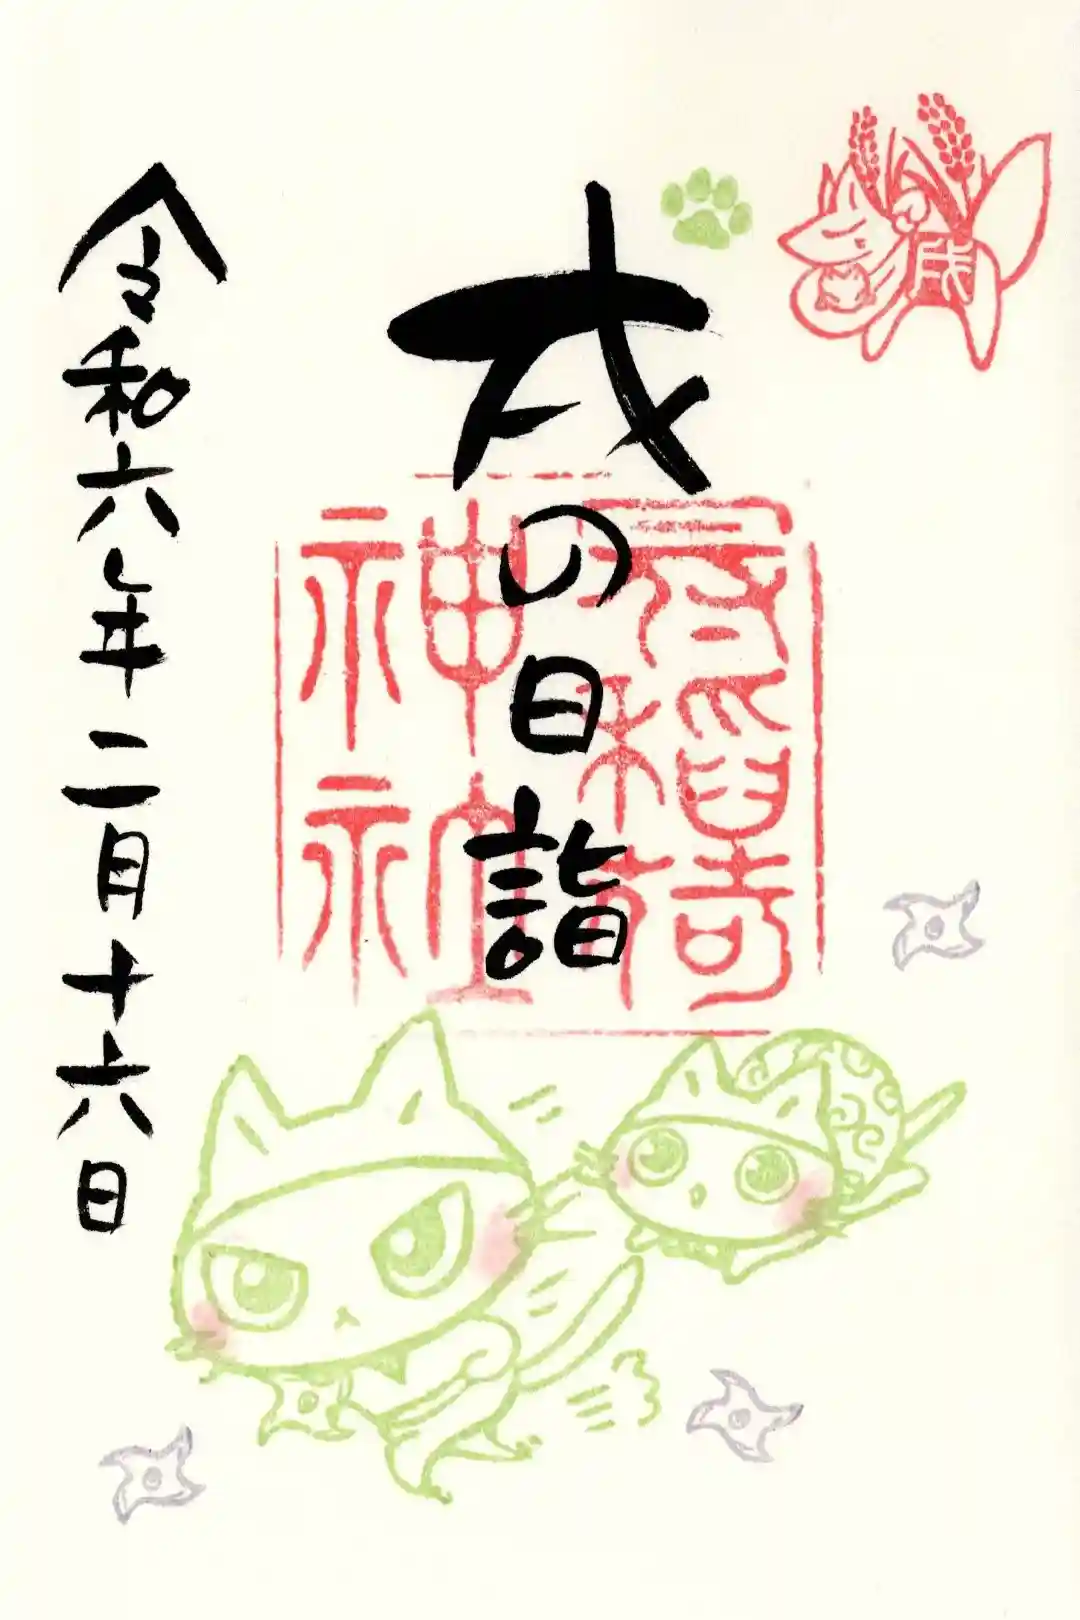 戌
戌の日詣
居稲荷神社
令和六年二月十六日